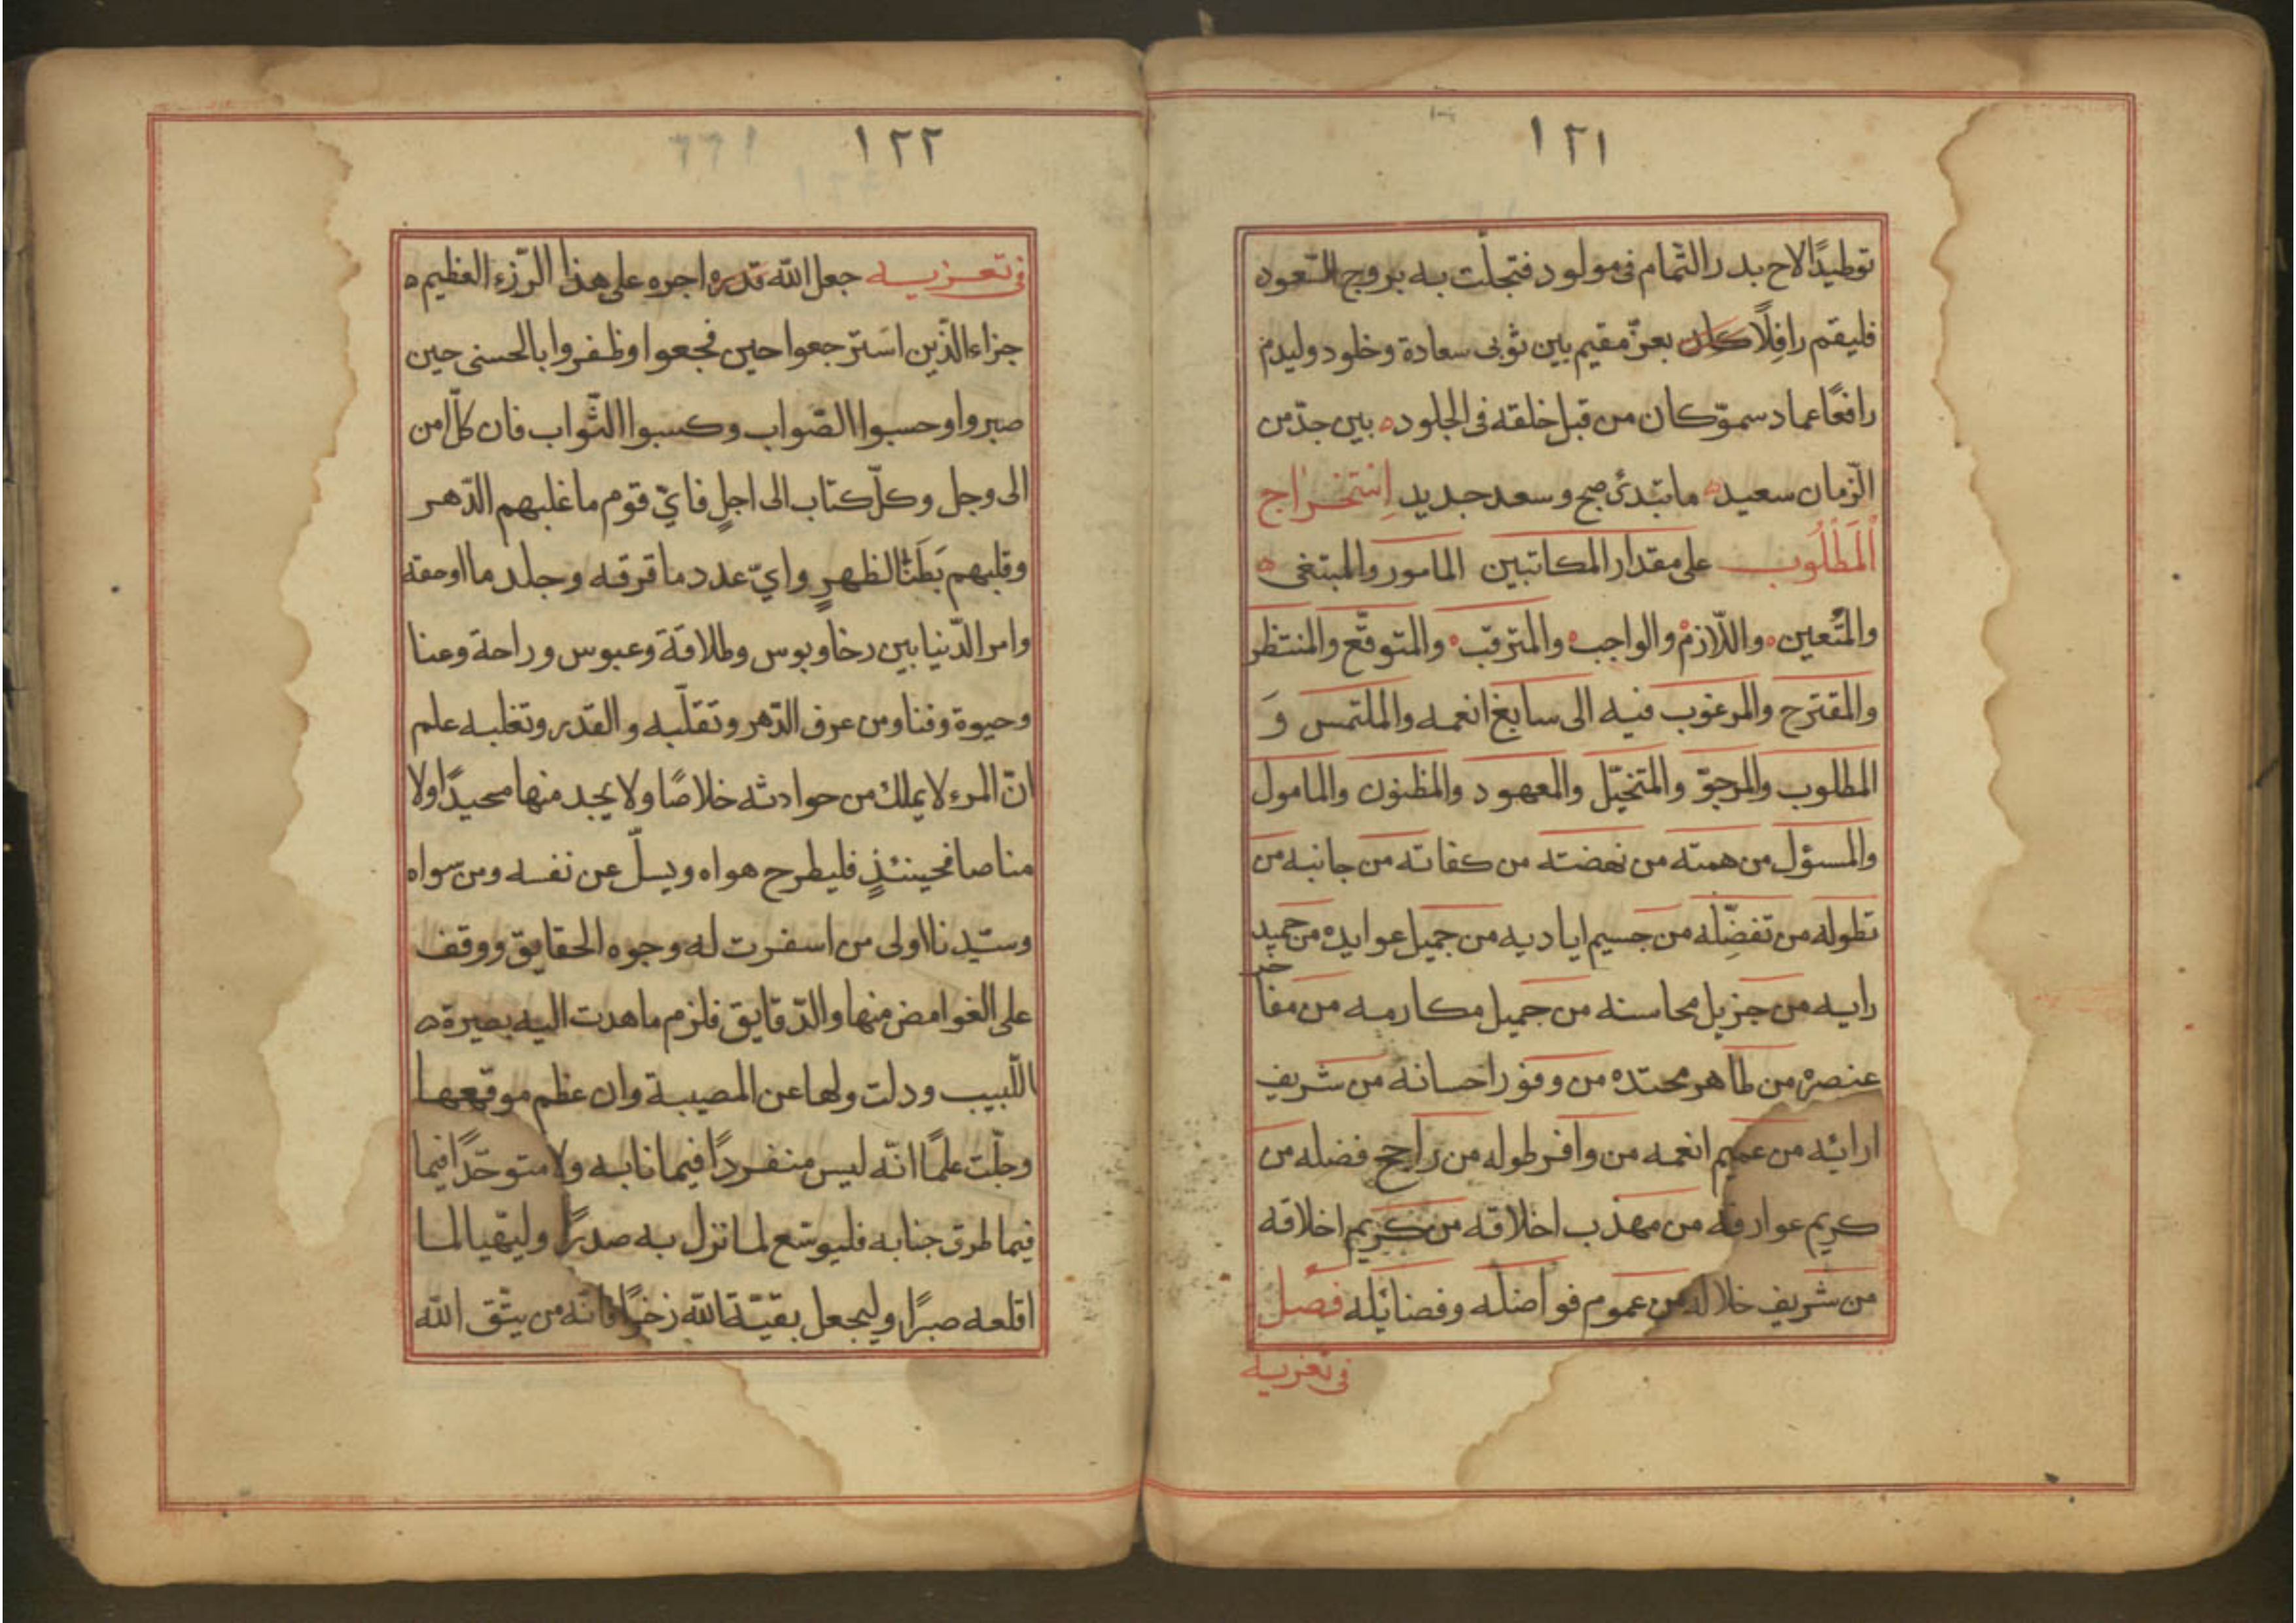 ١٢١
توطيدًا لاح بدر التمام فى مولود فتجلت به بروج السعود
فليقم رافلًا كان بعزّ مقيم بين ثوبى سعادة وخلود وليدم
رافعًا عماد سموّ كان من قبل خلقه فى الجلود ه بين جدّ من
الزّمان سعيد ه مابتدئ صبح وسعد جديد اِسْتخراج
اَلْمَطْلُوب على مقدار المكاتبين المامور والمبتغى ه
والمتُعين ه واللّازم ه والواجب ه والمترقّب ه والمتوقّع والمنتظر
والمقترح والمرغوب فيه الى سابغ انعمه والملتمس وَ
المطلوب والمرجوّ والمتخيّل والمعهود والمظنون والمامول
والمسؤل من همته من نهضته من كفاته من جانبه من
تطوله من تفضّله من جسيم اياديه من جميل عوايده من حميد
رايه من جزيل محاسنه من جميل مكارمه من مفاخر
عنصره من طاهر محتده من وفور احسانه من شريف
ارائه من عميم انعمه من وافر طوله من راجح فضله من
كريم عوارفه من مهذب اخلاقه من كريم اخلاقه
من شريف خلاله من عموم فواضله وفضايله فصل
فى تعزيه
١٢٢
فى تعزيه جعل الله قدره اجره على هذا الرّزء العظيم ه
جزاء الّذين استرجعوا حين فجعوا وظفروا بالحسنى حين
صبروا وحسبوا الصّواب وكسبوا الثّواب فان كلّ امن
الى وجل وكلّ كتاب الى اجلٍ فاىّ قوم ما غلبهم الدّهر
وقلبهم بَطَنًا لظهرٍ واىّ عدد ما فرقه وجلد ما اوهقه
وامر الدّنيا بين رخا وبوس وطلاقة وعبوس وراحة وعنا
وحيوة وفنا ومن عرف الدّهر وتقلّبه والقدر وتغلبه علم
انّ المرء لا يملك من حوادثه خلاصًا ولا يجد منها محيدًا ولا
مناصا فحينئذٍ فليطرح هواه ويسلّ عن نفسه ومن سواه
وسيّدنا اولى من اسفرت له وجوه الحقايق ووقف
على الغوامض منها والدّقايق فلزم ما هدت اليه بصيرة ه
اللّبيب ودلت ولها عن المصيبة وان عظم موقعها
وجلّت علمًا انّه ليس منفردًا فيما نابه ولا متوحّدًا فيما
فيما طرق جنابه فليوسّع لما نزل به صدرًا وليتهيا لما
اقلعه صبرًا وليجعل بقيّة الله زخرًا فانّه من يتّق الله